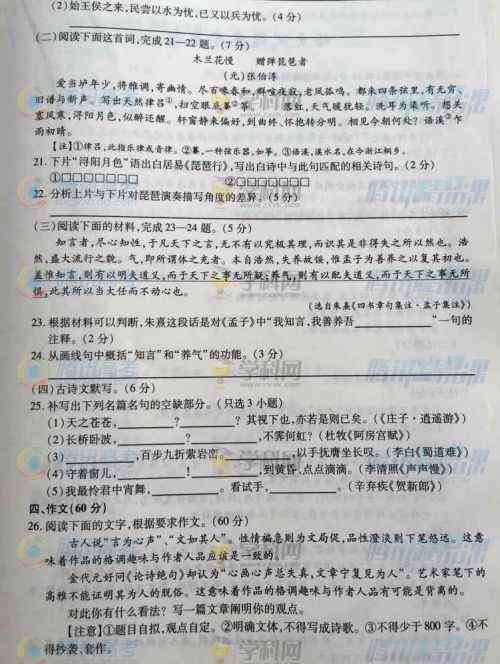 (2)始王侯之来,民尝以水为忧,已又以兵为忧。(4分)
(二)阅读下面这首词,完成21—22题。(7分)
木兰花慢 赠弹琵琶者
(元)张伯淳
爱当垆年少,将雅调,寄幽情。尽百啭春和,群喧夜寂,老凤孤鸣。都来四条弦里,有无穷、
旧谱与新声。写出天然律吕①,扫空眼底秦②筝。 落红,天气暖犹轻。洗耳为渠听。想关
塞风寒,浔阳月色,似醉还醒。轩窗静来偏好,到曲终、怀抱转分明。相见今朝何处?语溪③乍
雨初晴。
【注】①律吕,此指乐律或音律。②秦,一种弦乐器,如筝。③语溪,溪水名,在今浙江桐乡。
21.下片“浔阳月色”语出白居易《琵琶行》,写出白诗中与此句匹配的相关诗句。(2分)
①□□□□□□□ ②□□□□□□□
22.分析上片与下片对琵琶演奏描写角度的差异。(5分)
(三)阅读下面的材料,完成23—24题。(5分)
知言者,尽心知性,于凡天下之言,无不有以究极其理,而识其是非得失之所以然也。浩
然,盛大流行之貌。气,即所谓体之充者。本自浩然,失养故馁,惟孟子为善养之以复其初也。
盖惟知言,则有以明夫道义,而于天下之事无所疑;养气,则有以配夫道义,而于天下之事无所
惧,此其所以当大任而不动心也。
(选自朱熹《四书章句集注·孟子集注》)
23.根据材料可以判断,朱熹这段话是对《孟子》中“我知言,我善养吾____________”一句的
注释。(2分)
24.从画线句中概括“知言”和“养气”的功能。(3分)
(四)古诗文默写。(6分)
25.补写出下列名篇名句的空缺部分。(只选3小题)
(1)天之苍苍,________?________? 其视下也,亦若是则已矣。(《庄子·逍遥游》)
(2)长桥卧波,________? ________,不霁何虹?(杜牧《阿房宫赋》)
(3)________,百步九折萦岩峦。________,以手抚膺坐长叹。(李白《蜀道难》)
(4)守着窗儿,________!________,到黄昏,点点滴滴。(李清照《声声慢》)
(5)我最怜君中宵舞,________。看试手,________。(辛弃疾《贺新郎》)
四、作文(60分)
26.阅读下面的文字,根据要求作文。(60分)
古人说“言为心声”、“文如其人”。性情褊急则为文局促,品性澄淡则下笔悠远。这意
味着作品的格调趣味与作者人品应该是一致的。
金代元好问《论诗绝句》却认为“心画心声总失真,文章宁复见为人”。艺术家笔下的
高雅不能证明其为人的脱俗。这意味着作品的格调趣味与作者人品有可能是背离的。
对此你有什么看法?写一篇文章阐明你的观点。
【注意】①题目自拟,观点自定。②明确文体,不得写成诗歌。③不得少于800字。④不
得抄袭、套作。